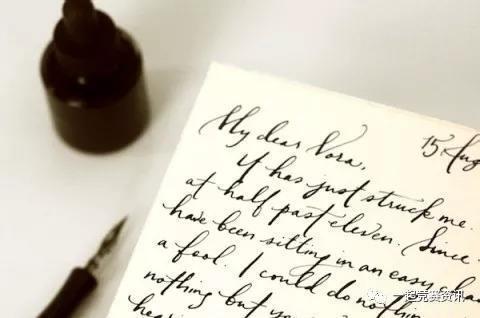 15 Aug
My dear Nora,
It has just struck me.
at half past eleven. Since
have been sitting in an easy cha
a fool. I could do nothin
nothing but yo
hea
一起竞赛资讯